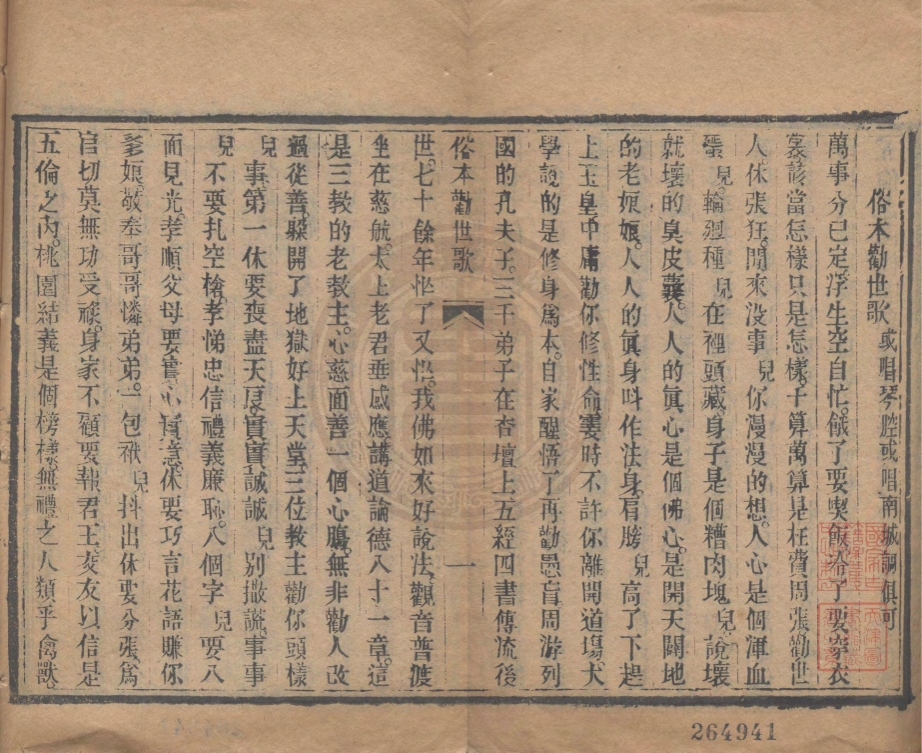 俗本勸世歌 或唱琴腔或唱南城調俱可
萬事分已定。浮生空自忙。餓了要喫飯。冷了要穿衣
裳。該當怎樣只是怎樣。千算萬算是枉費周張。勸世
人休張狂。閒來沒事兒你漫漫的想。人心是個渾血
蛋兒。輪迴種兒在裡頭藏。身子是個糟肉塊兒。說壞
就壞的臭皮囊。人人的眞心是個佛心。是開天闢地
的老娘娘。人人的眞身叫作法身。肩膀兒高了下起
上玉皇。中庸勸你修性命。霎時不許你離開道場。大
學說的是修身爲本。自家醒悟了再勸愚盲。周游列
國的孔夫子。三千弟子在杏壇上。五經四書傳流後
俗本勸世歌 一
世。七十餘年忙了又忙。我佛如來好說法。觀音普渡
坐在慈航。太上老君垂感應。講道論德八十一章。這
是三教的老教主。心慈面善一個心腸。無非勸人改
過從善。躱開了地獄好上天堂。三位教主勸你頭樣
兒事。第一休要喪盡天良。實實誠誠兒別撒謊。事事
兒不要扎空槍。孝悌忠信禮義廉恥。八個字兒要八
面見光。孝順父母要實心實意。休要巧言花語賺你
爹娘。敬奉哥哥憐弟弟。一包袱兒抖出休要分張。爲
官切莫無功受祿。身家不顧要報君王。交友以信是
五倫之內。桃園結義是個榜樣。無禮之人類乎禽獸。
264941